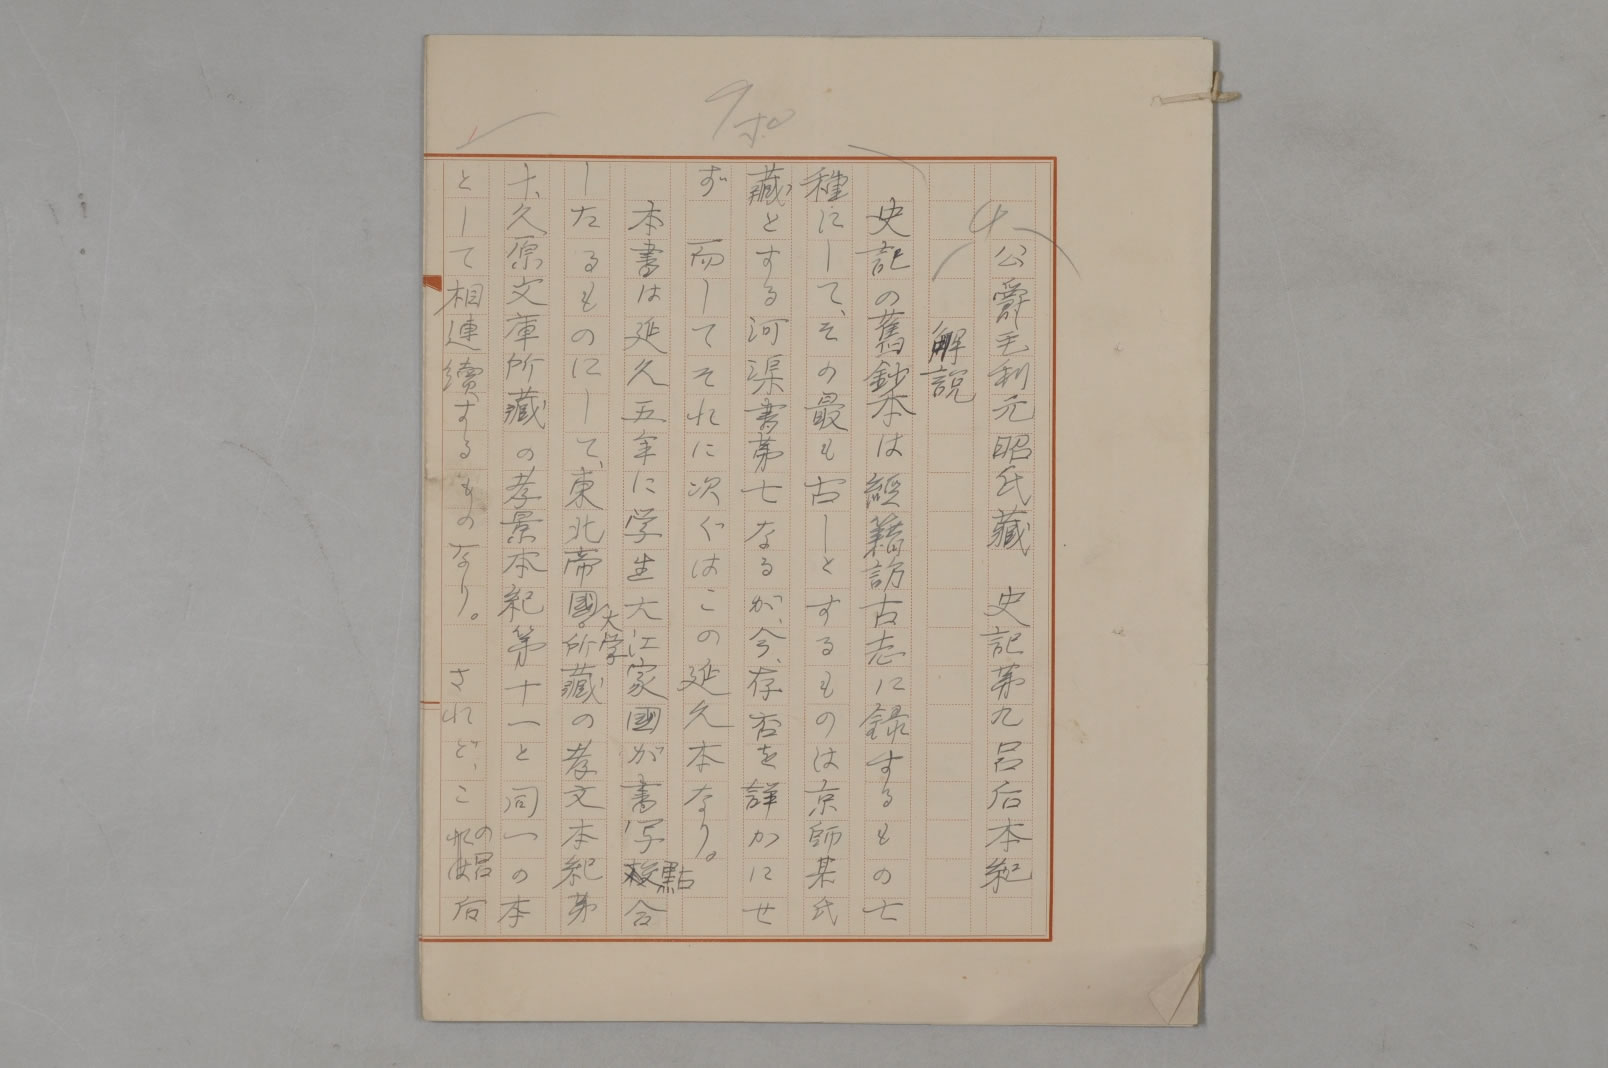 公爵毛利元昭氏藏　史記第九呂后本紀
解説
史記の舊鈔本は經籍訪古志に録するもの七
種にして、その最も古しとするものは京師某氏
藏とする河渠書第七なるが、今、存否を詳かにせ
ず　而してそれに次ぐはこの延久本なり。
本書は延久五年に学生大江家國が書写點合
したるものにして、東北帝國大学所藏の孝文本紀第
十、久原文庫所藏の孝景本紀第十一と同一の本
として相連續するものなり。　されど、この呂后